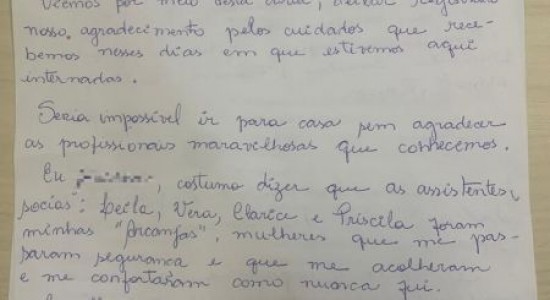 Viemos por meio desta carta, deixar registrado
nosso, agradecimento pelos cuidados que rece-
bemos nesses dias em que estivemos aqui
internadas.
Seria impossível ir para casa sem agradecer
as profissionais maravilhosas que conhecemos.
Eu, costumo dizer que as assistentes
sociais: Leila, Vera, Clarice e Priscila foram
minhas "Arcanjas", mulheres que me pas-
saram segurança e que me acolheram
e me confortaram como nunca fui.